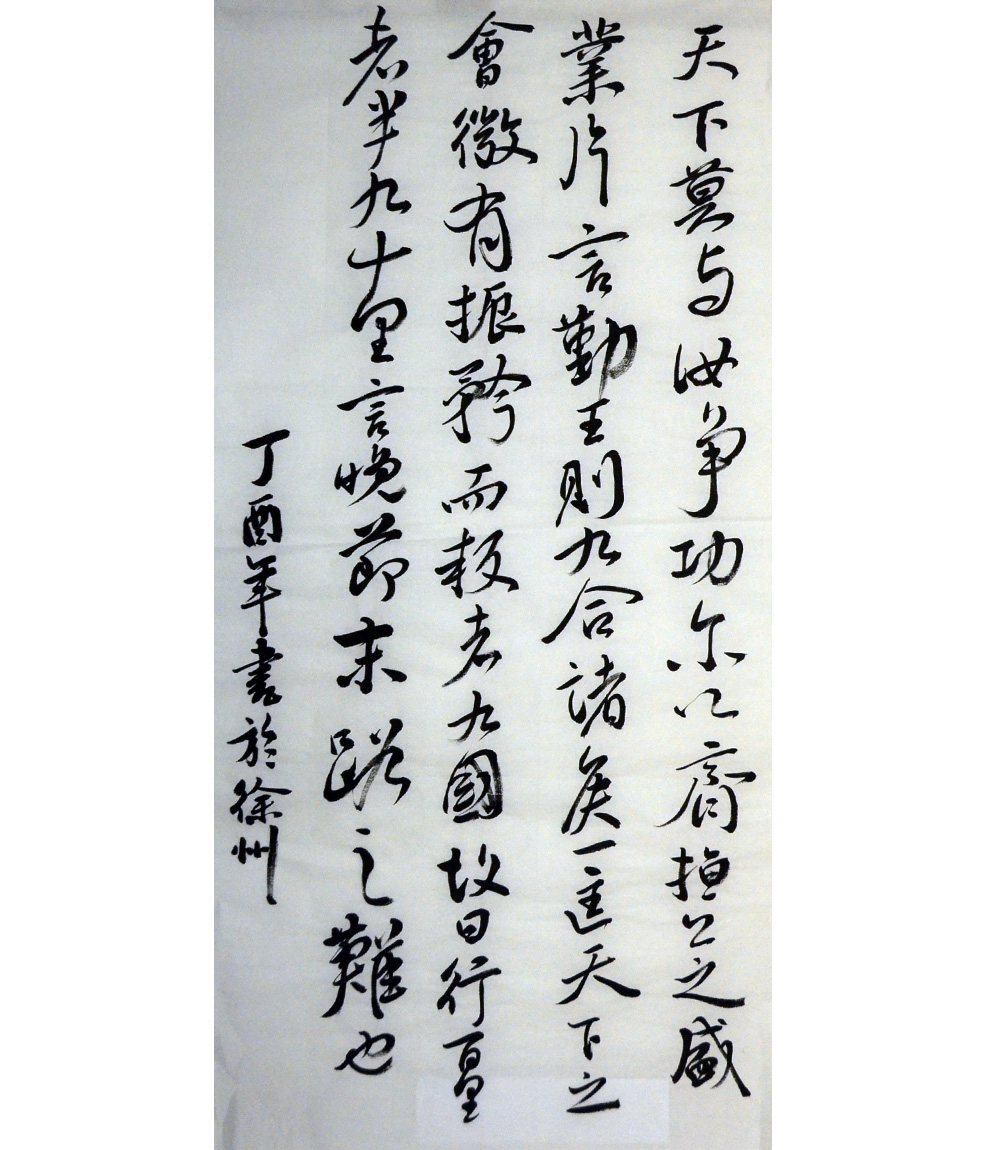 天下莫与汝争功尔以齊桓公之盛
業片言勤王則九合諸侯一匡天下之
會微有振矜而叛者九國故曰行百里
者半九十里言晚節末路之難也
丁酉年書於徐州